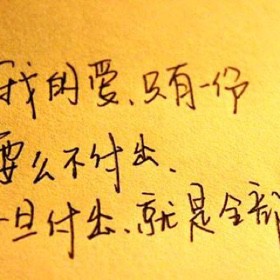 我的爱、只有一份
要么不付出、
一旦付出、就是全部